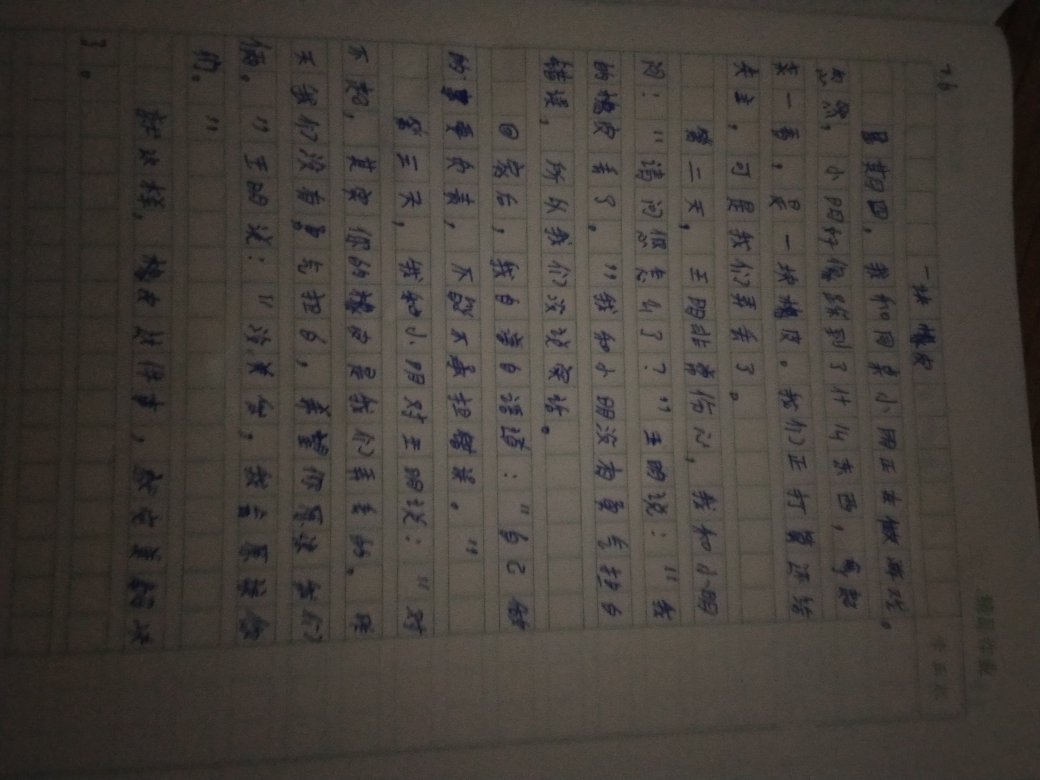 7.6
一块橡皮
星期四，我和同桌小明正在做游戏。
忽然，小明好像踩到了什么东西，起
来一看，是一块橡皮。我们正打算还给
失主，可是我们弄丢了。
第二天，王明非常伤心，我和小明
问：“请问你怎么了？”王明说：“我
的橡皮丢了。”我和小明没有勇气担当
错误，所以我们没说实话。
回家后，我自言自语道：“自己做
的事要负责，不能不承担错误。”
第三天，我和小明对王明说：“对
不起，其实你的橡皮是我们弄丢的。昨
天我们没有勇气担当，希望你原谅我们
俩。”王明说：“没关系，我会原谅你
们。”
就这样，橡皮这件事，就完美解决
了。